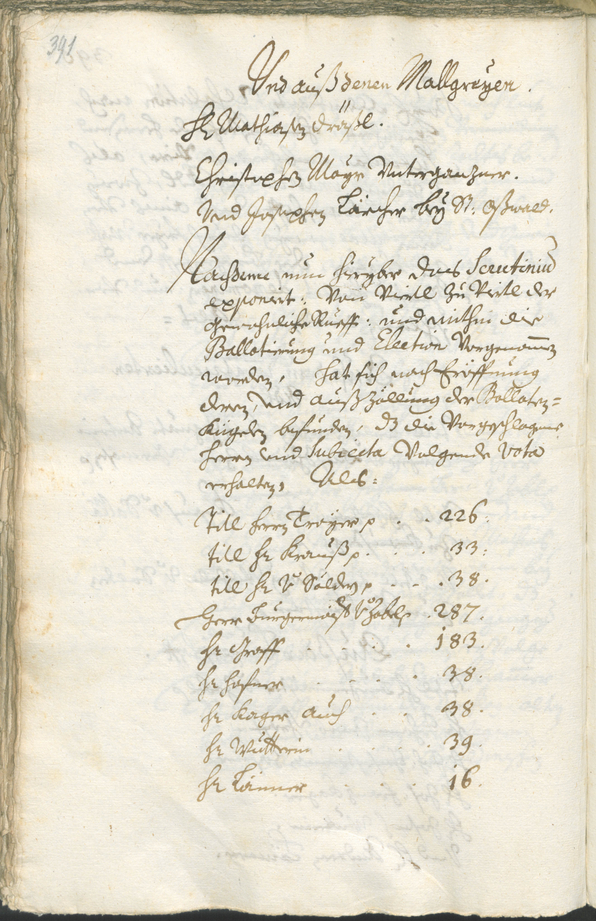 391
Und auß denen Mallgreyen.
Hr Mathiasen Dräsl.
Christophen Mayr Unterganzner.
Und Josephen Larcher bey St: Oßwald.
Nachdeme nun hieryber das Scrutinium
exponirt: Von Viertl zu Viertl der
gewohnliche Rueff: und mithin die
Ballotierung und Election Vorgenommen
worden, hat sich nach Eröffnung
deren, und außzöllung der Balloten=
Kuglen befunden, dz die Vorgeschlagene
Herrn und Subjecta Volgende Vota
erhalten, Als:
Titl Herr Troyer p . . 226.
titl Hr Krauß p. . 33:
titl Hr V: Söldner p . . . 38.
Herr Burgermaister Zobel . 287.
Hr Graff . . . . 183.
Hr Hafner . . . . 38.
Hr Kager auch . . 38.
Hr Wütterin . . . . 39.
Hr Länner . . . 16.